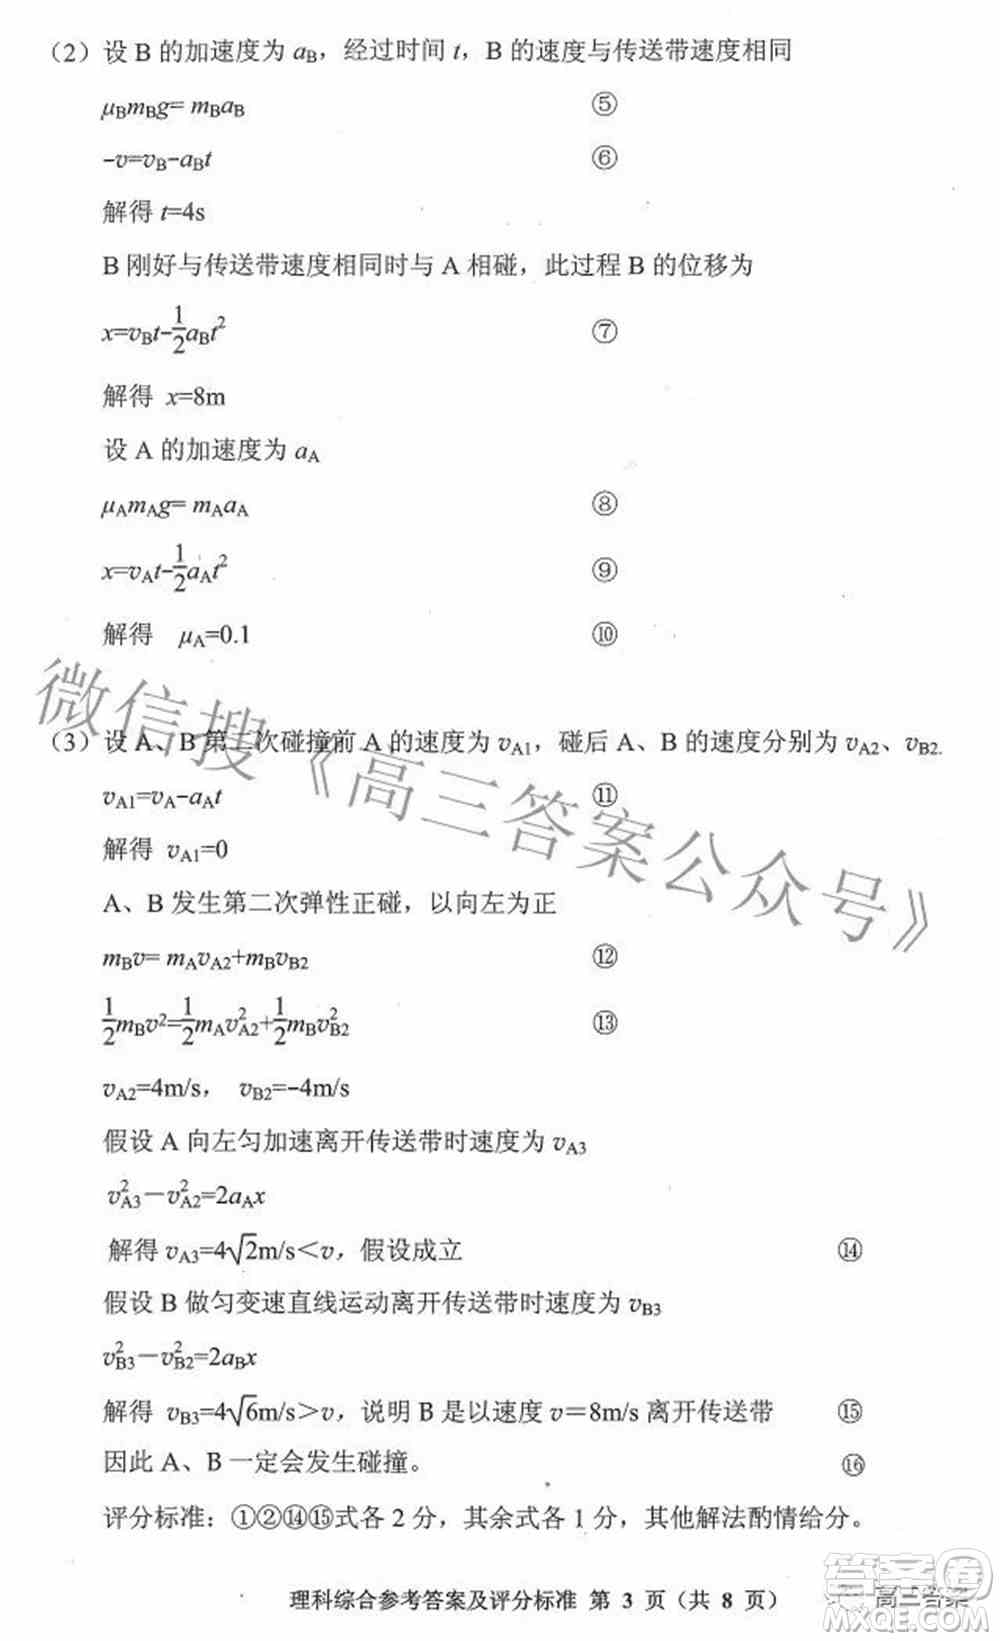 （2）设 B 的加速度为 aB，经过时间 t，B 的速度与传送带速度相同
μBmBg= mBaB ⑤
-v=vB-aBt ⑥
解得 t=4s
B 刚好与传送带速度相同时与 A 相碰，此过程 B 的位移为
x=vBt-1/2aBt² ⑦
解得 x=8m
设 A 的加速度为 aA
μAmAg= mAaA ⑧
x=vAt-1/2aAt² ⑨
解得 μA=0.1 ⑩
（3）设 A、B 第二次碰撞前 A 的速度为 vA1，碰后 A、B 的速度分别为 vA2、vB2.
vA1=vA-aAt ⑪
解得 vA1=0
A、B 发生第二次弹性正碰，以向左为正
mBv= mAvA2+mBvB2 ⑫
1/2mBv²=1/2mAvA2²+1/2mBvB2² ⑬
vA2=4m/s， vB2=-4m/s
假设 A 向左匀加速离开传送带时速度为 vA3
vA3²－vA2²=2aAx
解得 vA3=4√2m/s＜v，假设成立 ⑭
假设 B 做匀变速直线运动离开传送带时速度为 vB3
vB3²－vB2²=2aBx
解得 vB3=4√6m/s＞v，说明 B 是以速度 v＝8m/s 离开传送带 ⑮
因此 A、B 一定会发生碰撞。 ⑯
评分标准：①②⑭⑮式各 2 分，其余式各 1 分，其他解法酌情给分。
理科综合参考答案及评分标准 第 3 页（共 8 页）
微信搜《高三答案公众号》
高三答案
答案圈
MXQE.COM